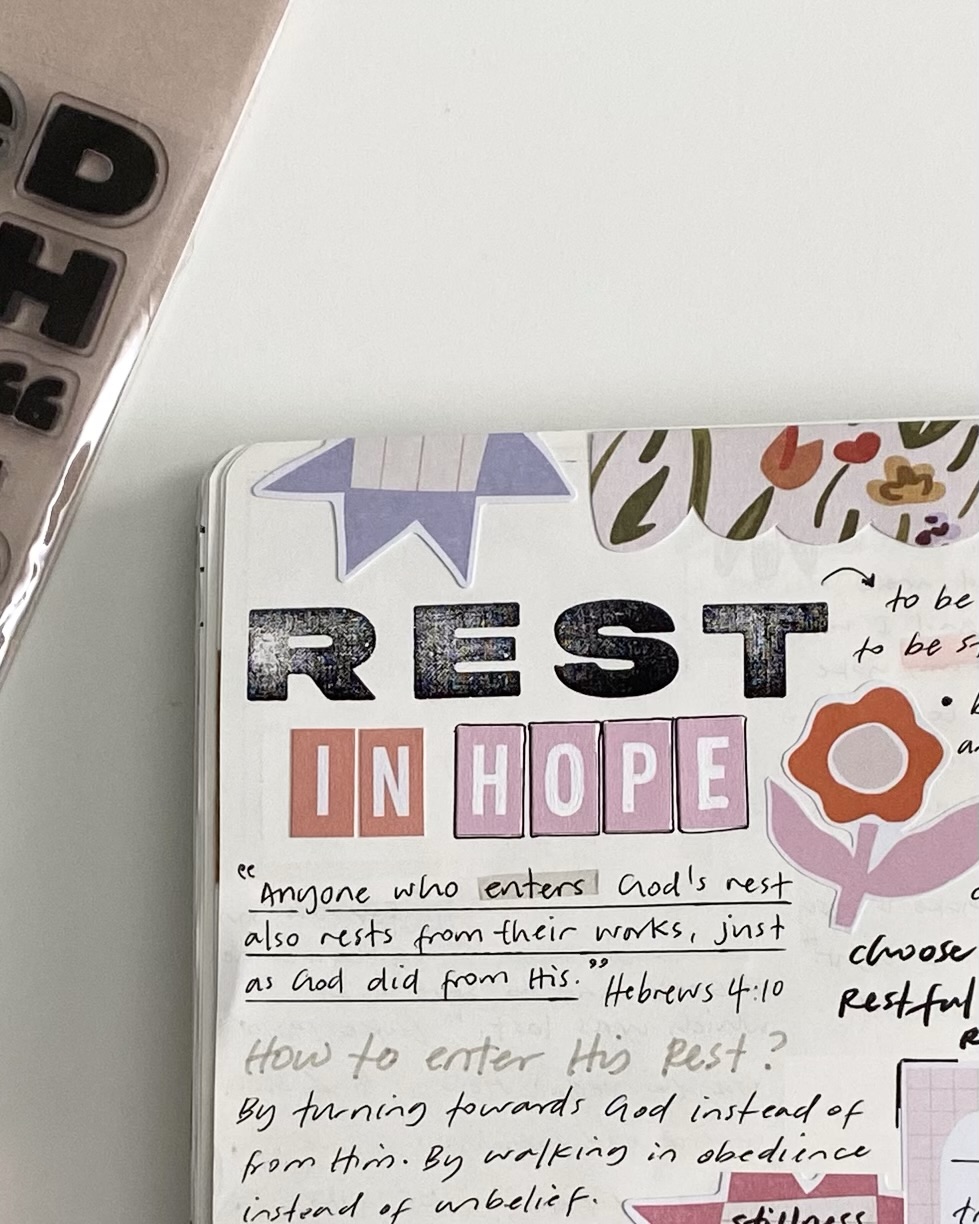 D
H
REST
IN HOPE
"Anyone who enters God's rest
also rests from their works, just
as God did from His." Hebrews 4:10
How to enter His Rest?
By turning towards God instead of
from Him. By walking in obedience
instead of unbelief.
to be
to be
choose
Restful
stillness